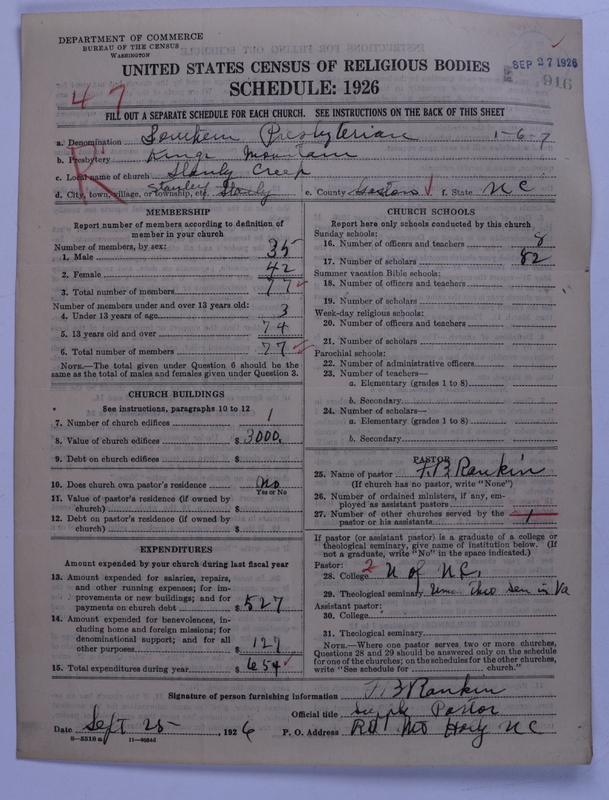 DEPARTMENT OF COMMERCE
BUREAU OF THE CENSUS
WASHINGTON
SEP 27 1926
916
UNITED STATES CENSUS OF RELIGIOUS BODIES
SCHEDULE: 1926
47
FILL OUT A SEPARATE SCHEDULE FOR EACH CHURCH. SEE INSTRUCTIONS ON THE BACK OF THIS SHEET
R
a. Denomination Southern Presbyterian 1-6-7
b. Presbytery Kings Mountain
c. Local name of church Stanly Creek
d. City, town, village, or township, etc. Stanley Stanly e. County Gaston f. State N C
MEMBERSHIP
Report number of members according to definition of
member in your church
Number of members, by sex:
1. Male 35
2. Female 42
3. Total number of members 77
Number of members under and over 13 years old:
4. Under 13 years of age 3
5. 13 years old and over 74
6. Total number of members 77
NOTE.—The total given under Question 6 should be
same as the total of males and females given under Question 3.
CHURCH BUILDINGS
See instructions, paragraphs 10 to 12
7. Number of church edifices 1
8. Value of church edifices $ 3000.
9. Debt on church edifices $
10. Does church own pastor's residence No
Yes or No
11. Value of pastor's residence (if owned by
church) $
12. Debt on pastor's residence (if owned by
church) $
EXPENDITURES
Amount expended by your church during last fiscal year
13. Amount expended for salaries, repairs,
and other running expenses; for im-
provements or new buildings; and for
payments on church debt $ 527
14. Amount expended for benevolences, in-
cluding home and foreign missions; for
denominational support; and for all
other purposes 127
15. Total expenditures during year $ 654
CHURCH SCHOOLS
Report here only schools conducted by this church
Sunday schools:
16. Number of officers and teachers 8
17. Number of scholars 82
Summer vacation Bible schools:
18. Number of officers and teachers
19. Number of scholars
Week-day religious schools:
20. Number of officers and teachers
21. Number of scholars
Parochial schools:
22. Number of administrative officers
23. Number of teachers—
a. Elementary (grades 1 to 8)
b. Secondary
24. Number of scholars—
a. Elementary (grades 1 to 8)
b. Secondary
PASTOR
25. Name of pastor F. B. Rankin
(If church has no pastor, write "None")
26. Number of ordained ministers, if any, em-
ployed as assistant pastors
27. Number of other churches served by the
pastor or his assistants 1
If pastor (or assistant pastor) is a graduate of a college or
theological seminary, give name of institution below. (If
not a graduate, write "No" in the space indicated.)
Pastor: 2
28. College U of N C,
29. Theological seminary Union Theo Sem in Va
Assistant pastor:
30. College
31. Theological seminary
NOTE.—Where one pastor serves two or more churches,
Questions 28 and 29 should be answered only on the schedule
for one of the churches; on the schedules for the other churches,
write "See schedule for church."
Signature of person furnishing information F. B Rankin
Official title Supply Pastor
Date Sept 25 , 1926 P. O. Address R#1 Mt Holly N C